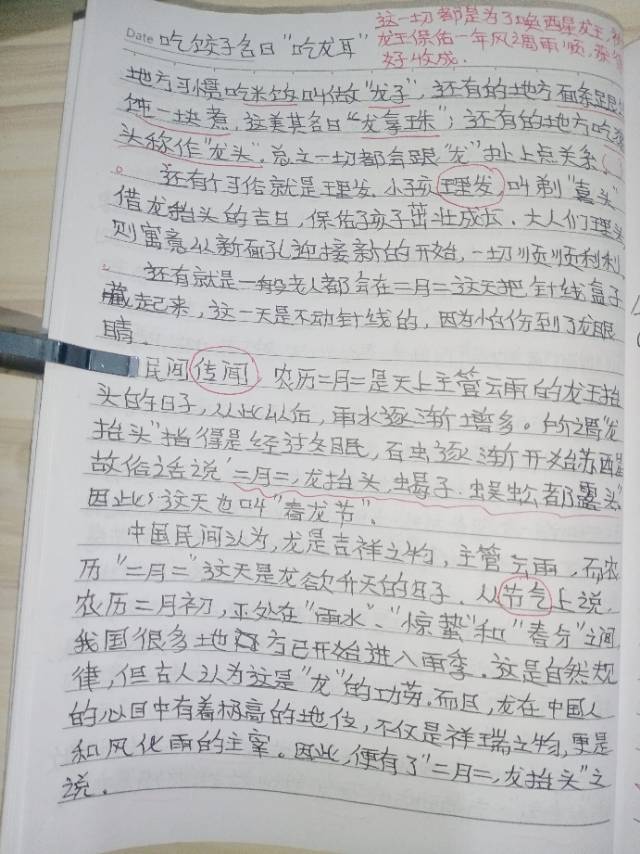 这一切都是为了唤醒龙王,
龙王保佑一年风调雨顺,
好收成.
Date 吃饺子名曰“吃龙耳”
地方习惯吃米饭叫做“龙子”,还有的地方面条跟
馄饨一块煮,这美其名曰“龙拿珠”;还有的地方吃
头称作“龙头”.总之一切都会跟“龙”扯上点关系.
还有个习俗就是理发.小孩理发叫剃“喜头”
借龙抬头的吉日,保佑孩子茁壮成长.大人们理头
则寓意从新面孔迎接新的开始,一切顺顺利利
还有就是一般老人都会在二月二这天把针线盒子
藏起来,这一天是不动针线的,因为怕伤到了龙眼
睛.
民间传闻,农历二月二是天上主管云雨的龙王抬
头的日子,从此以后,雨水逐渐增多.所谓“龙
抬头”指得是经过冬眠,百虫逐渐开始苏西星
故俗话说“二月二,龙抬头,蝎子.蜈蚣都露头”
因此,这天也叫“春龙节”.
中国民间认为,龙是吉祥之物,主管云雨,而农
历“二月二”这天是龙欲升天的日子.从节气上说,
农历二月初,正处在“雨水”、“惊蛰”和“春分”之间
我国很多地方已开始进入雨季.这是自然规
律,但古人认为这是“龙”的功劳.而且,龙在中国人
的心目中有着极高的地位,不仅是祥瑞之物,更是
和风化雨的主宰.因此,便有了“二月二,龙抬头”之
说.